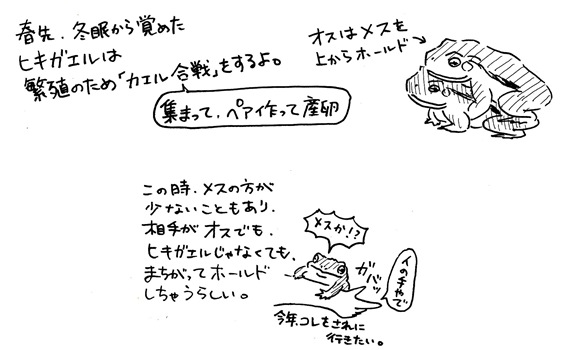 春先、冬眠から覚めた
ヒキガエルは
繁殖のため「カエル合戦」をするよ。
集まって、ペア作って産卵
オスはメスを
上からホールド
この時、メスの方が
少ないこともあり、
相手がオスでも、
ヒキガエルじゃなくても、
まちがってホールド
しちゃうらしい。
メスか!?
ガバッ
人の手やで
今年、コレをされに
行きたい。